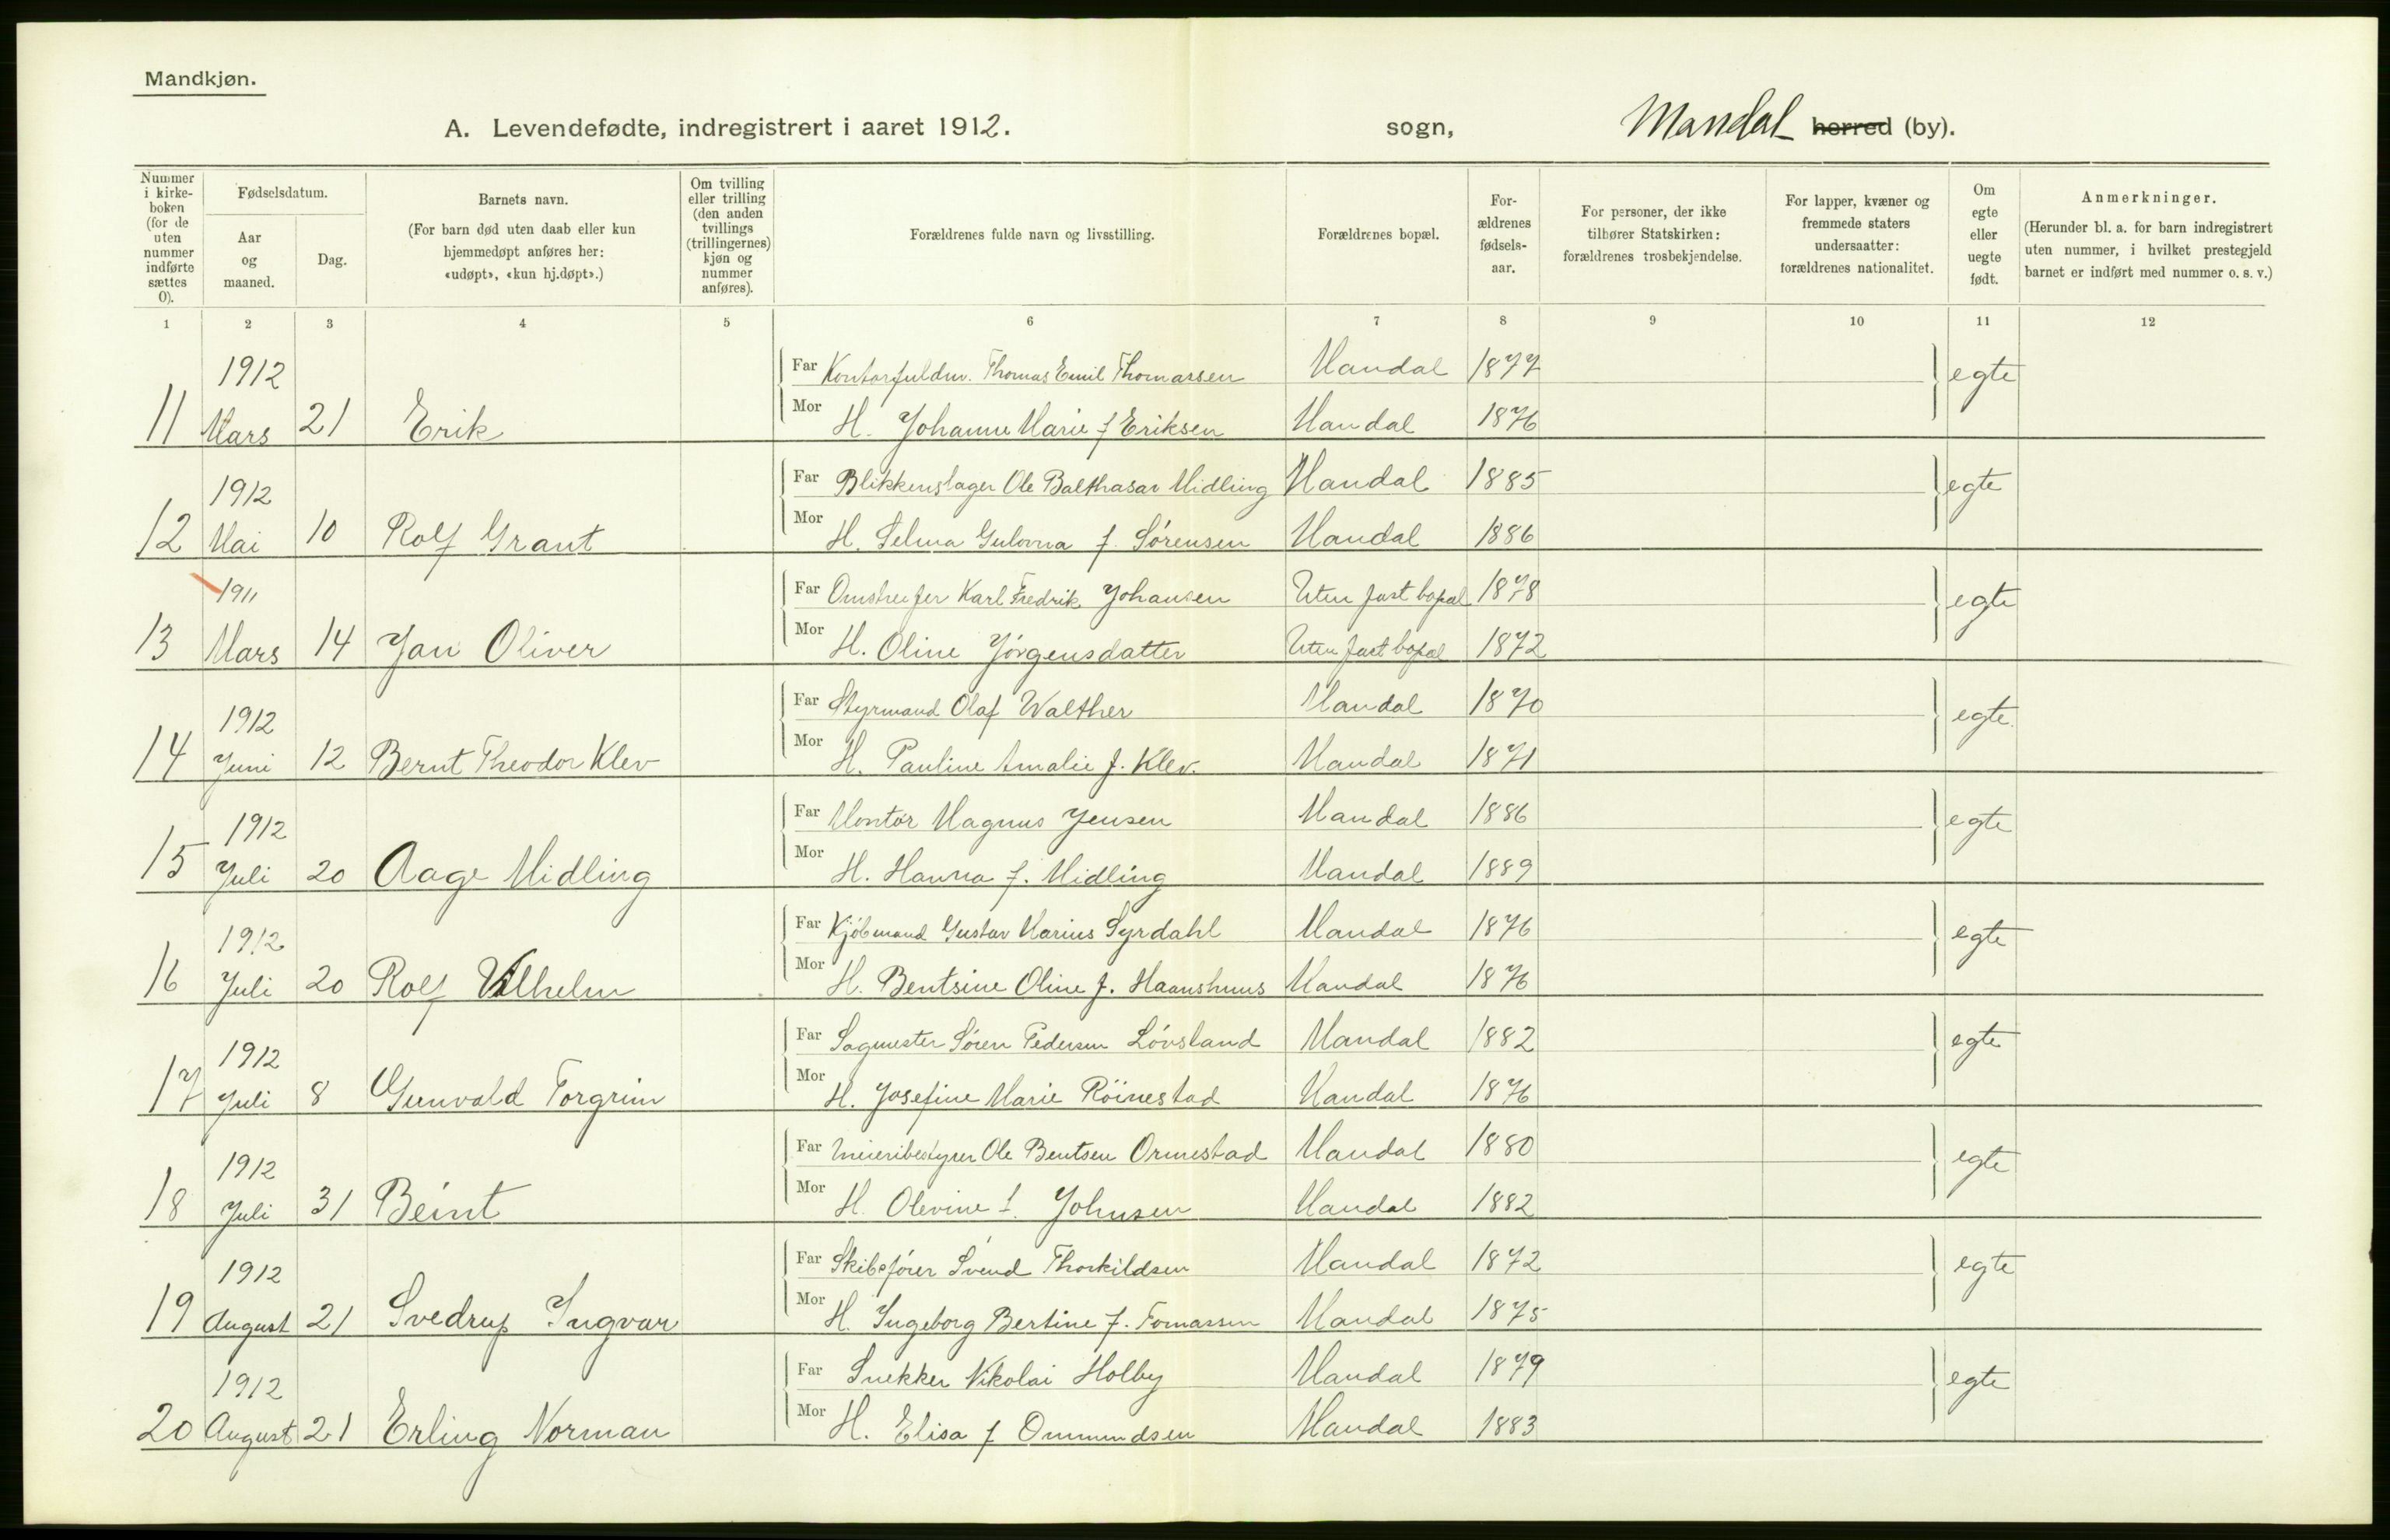 Mandkjøn.
A. Levendefødte, indregistrert i aaret 1912. sogn, Mandal herred (by).
Nummer i kirke-boken (for de uten nummer indførte sættes 0).
Fødselsdatum.
Aar og maaned.
Dag.
Barnets navn.
(For barn død uten daab eller kun hjemmedøpt anføres her: «udøpt», «kun hj.døpt».)
Om tvilling eller trilling (den anden tvillings (trillingernes) kjøn og nummer anføres).
Forældrenes fulde navn og livsstilling.
Forældrenes bopæl.
For-ældrenes fødsels-aar.
For personer, der ikke tilhører Statskirken: forældrenes trosbekjendelse.
For lapper, kvæner og fremmede staters undersaatter: forældrenes nationalitet.
Om egte eller uegte født.
Anmerkninger.
(Herunder bl. a. for barn indregistrert uten nummer, i hvilket prestegjeld barnet er indført med nummer o. s. v.)
1 2 3 4 5 6 7 8 9 10 11 12
1912 Far Kontorfuldm. Thomas Emil Thomassen Mandal 1877 egte
11 Mars 21 Erik Mor H. Johanne Marie f Eriksen Mandal 1876
1912 Far Blikkenslager Ole Balthasar Midling Mandal 1885 egte
12 Mai 10 Rolf Grant Mor H. Selma Gulovna f. Sørensen Mandal 1886
1911 Far Omstreifer Karl Fredrik Johansen Uten fast bopæl 1878 egte
13 Mars 14 Jan Oliver Mor H. Oline Jørgensdatter Uten fast bopæl 1872
1912 Far Styrmand Olaf Walther Mandal 1870 egte.
14 Juni 12 Bernt Theodor Klev Mor H. Pauline Amalie f. Klev. Mandal 1871
1912 Far Montør Magnus Jensen Mandal 1886 egte
15 Juli 20 Aage Midling Mor H. Hanna f. Midling Mandal 1889
1912 Far Kjøbmand Gustav Marius Syrdahl Mandal 1876 egte
16 Juli 20 Rolf Vilhelm Mor H. Bentsine Oline f. Haanshuus Mandal 1876
1912 Far Sagmester Søren Pedersen Løvsland Mandal 1882 egte
17 Juli 8 Gunvald Torgrim Mor H. Josefine Marie Röinestad Mandal 1876
1912 Far Meieribestyrer Ole Bentsen Ormestad Mandal 1880 egte
18 Juli 31 Beint Mor H. Olevine f. Johnsen Mandal 1882
1912 Far Skibsfører Svend Thorkildsen Mandal 1872 egte
19 August 21 Svedrup Ingvar Mor H. Ingeborg Bertine f. Tomassen Mandal 1875
1912 Far Snekker Nikolai Holby Mandal 1879 egte
20 August 21 Erling Norman Mor H. Elisa f Ommundsen Mandal 1883